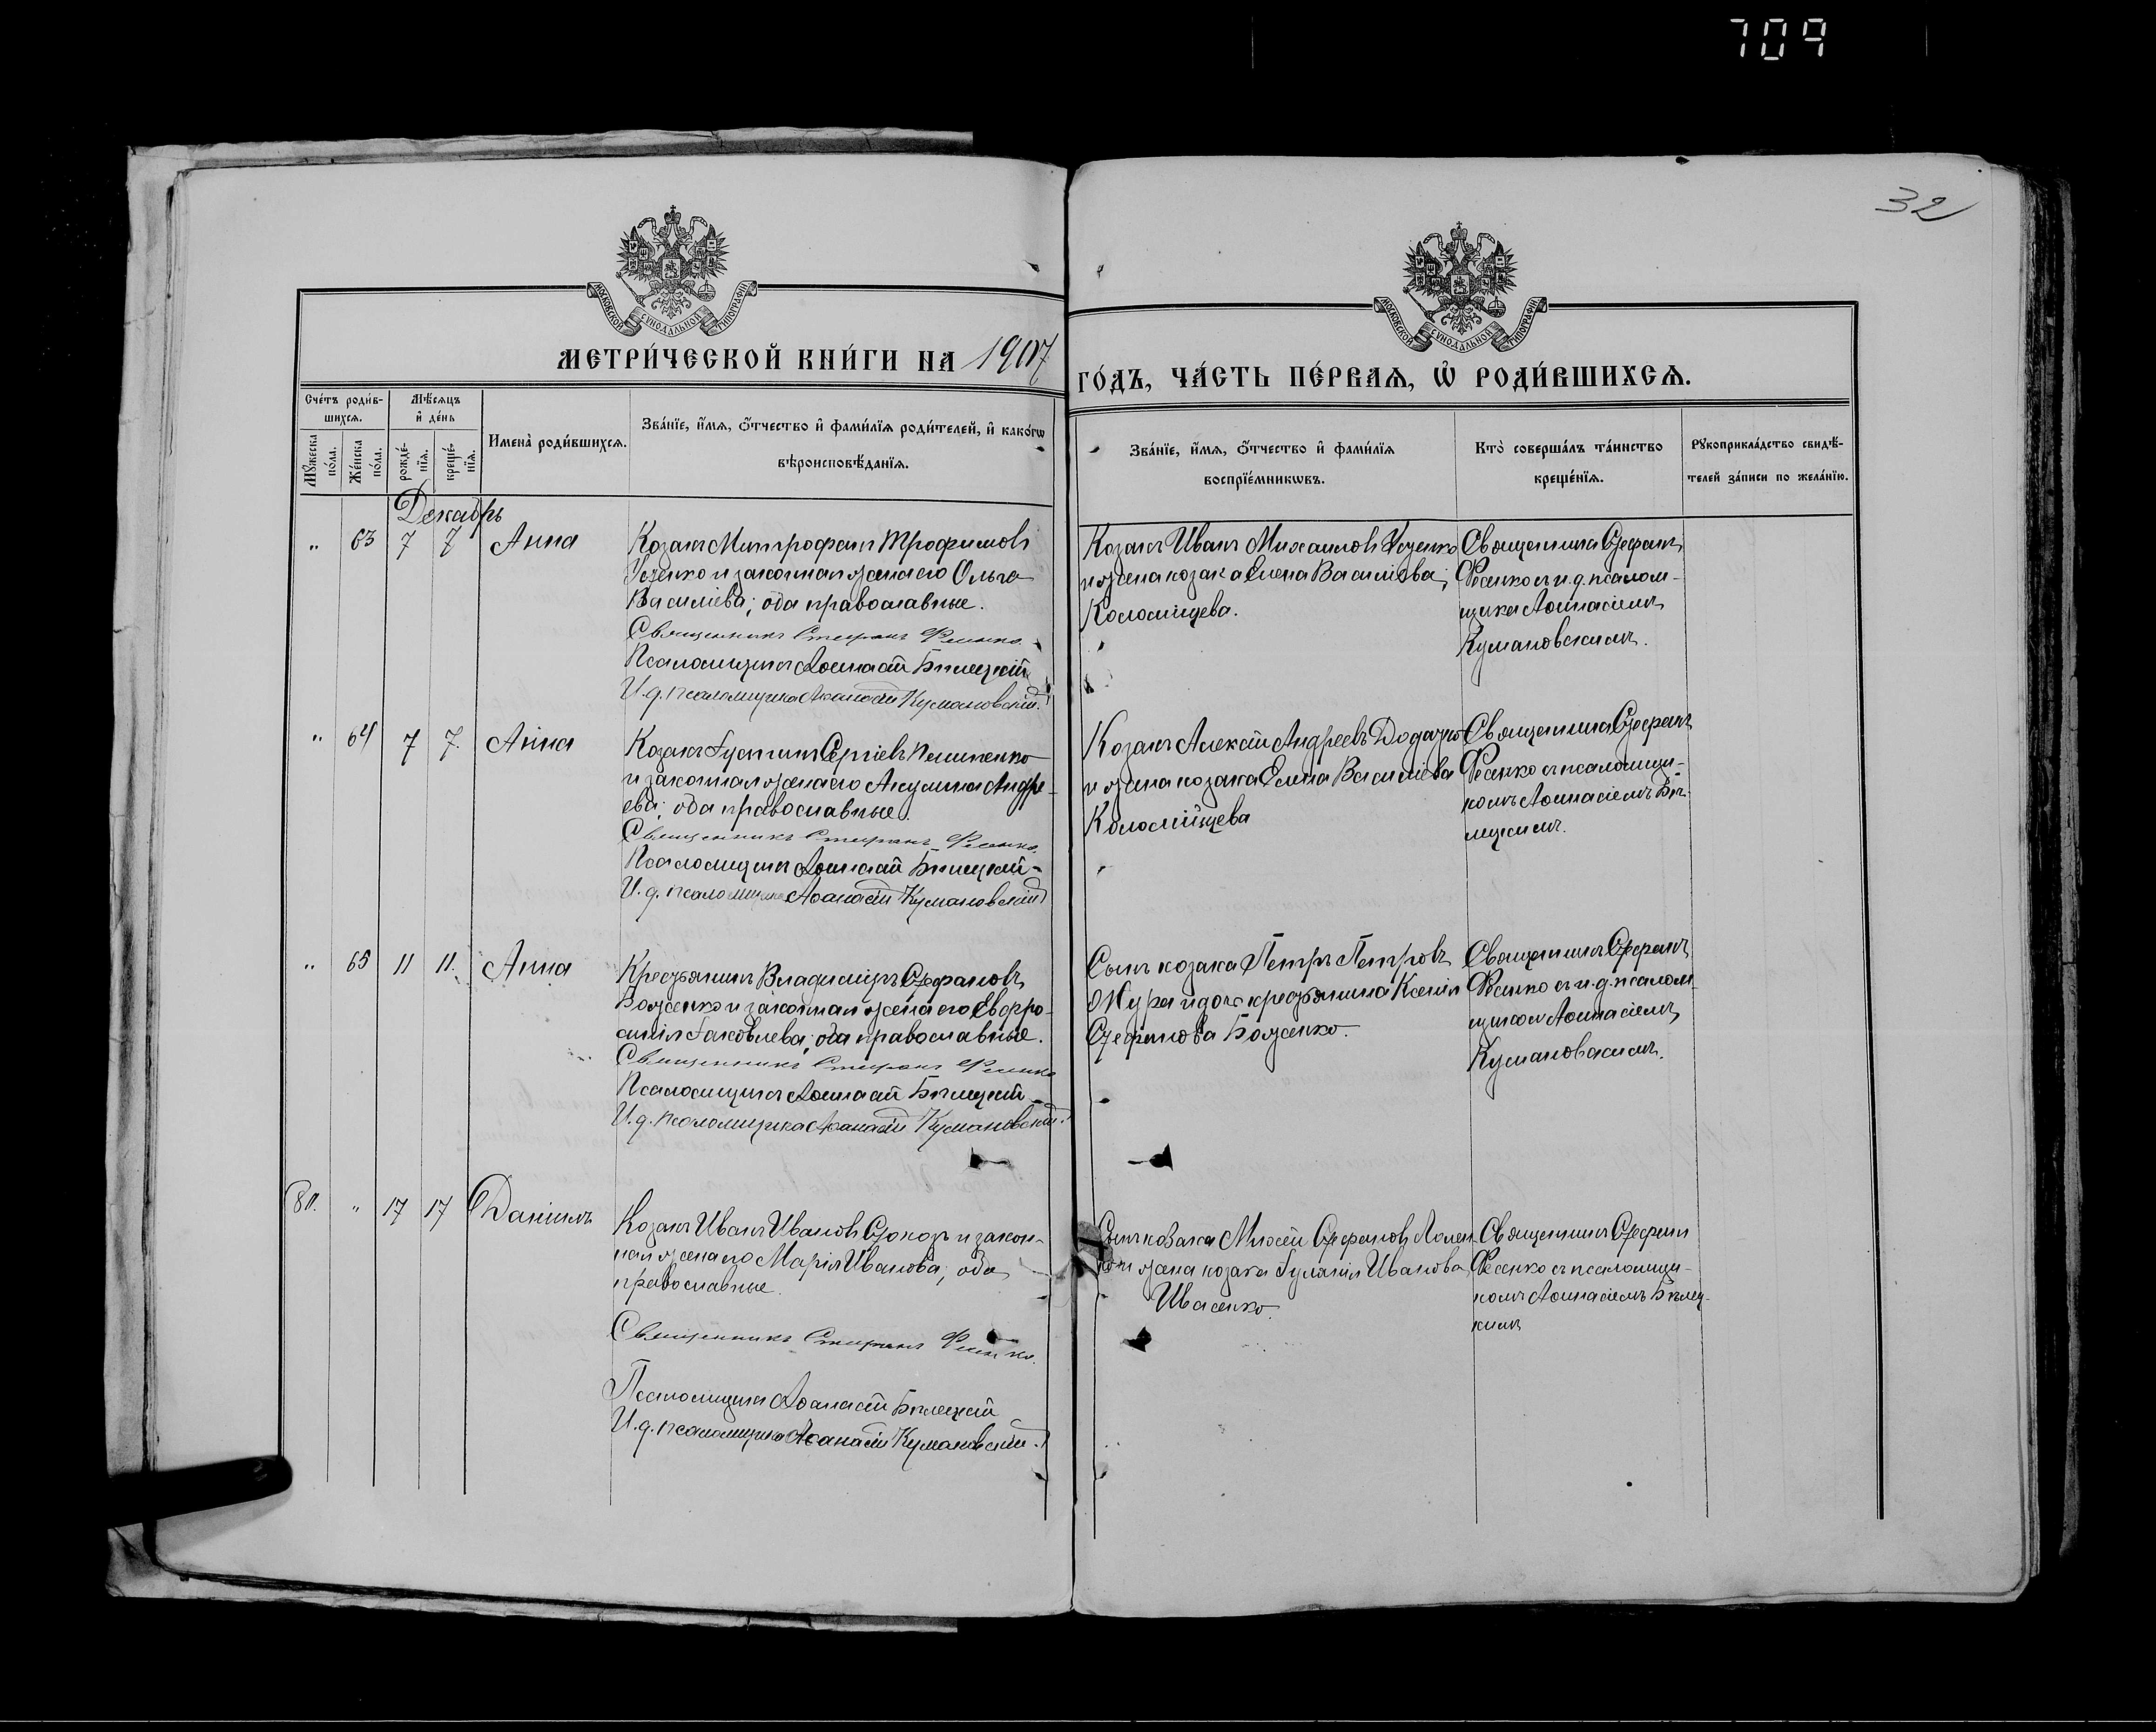 709
32
МОСКОВСКОЙ СѴНОДАЛЬНОЙ ТИПОГРАФІИ
МОСКОВСКОЙ СѴНОДАЛЬНОЙ ТИПОГРАФІИ
МЕТРИ́ЧЕСКОЙ КНИ́ГИ НА 1907
ГО́ДЪ, ЧА́СТЬ ПЕ́РВАѦ, Ѡ҆ РОДИ́ВШИХСѦ.
Сче́тъ роди́в-
шихсѧ.
Мꙋ́жеска по́ла.
Же́нска по́ла.
Мѣ́сѧцъ
и҆ де́нь
рожде́-
нїѧ.
креще́-
нїѧ.
Имена̀ роди́вшихсѧ.
Зва́нїе, и҆́мѧ, ѻ҆́тчество и҆ фами́лїѧ роди́телей, и҆ како́гѡ
вѣроисповѣ́данїѧ.
Зва́нїе, и҆́мѧ, ѻ҆́тчество и҆ фами́лїѧ
воспрїе́мникѡвъ.
Кто̀ соверша́лъ та́инство
креще́нїѧ.
Рꙋкоприкла́дство свидѣ́-
телей за́писи по жела́нїю.
Декабрь
" 63 7 7 Анна
Козакъ Митрофанъ Трофимовъ
Усенко и законная жена его Ольга
Василіева; оба православные.
Священникъ Стефанъ Фесенко.
Псаломщикъ Аѳанасій Бѣлецкій
И.д. псаломщика Аѳанасій Кумановскій.
Козакъ Иванъ Михаиловъ Усенко
и жена козака Елена Василіева
Коломійцева.
Священникъ Стефанъ
Фесенко съ и.д. псалом-
щика Аѳанасіемъ
Кумановскимъ.
" 64 7 7. Анна
Козакъ Іустинъ Сергіевъ
и законная жена его Акулина Андре-
ева; оба православные.
Священникъ Стефанъ Фесенко.
Псаломщикъ Аѳанасій Бѣлецкій
И.д. псаломщика Аѳанасій Кумановскій
Козакъ Алексѣй Андреевъ
и жена козака Елена Василіева
Коломійцева
Священникъ Стефанъ
Фесенко съ псаломщи-
комъ Аѳанасіемъ Бѣ-
лецкимъ.
" 65 11 11. Анна
Крестьянинъ Владиміръ Стефановъ
Боженко и законная жена его Евфро-
синія Іаковлева; оба православные.
Священникъ Стефанъ Фесенко
Псаломщикъ Аѳанасій Бѣлецкій
И.д. псаломщика Аѳанасій Кумановскій.
Сынъ козака Петръ Петровъ
Жура и дочь крестьянина Ксенія
Стефанова Боженко.
Священникъ Стефанъ
Фесенко съ и.д. псалом-
щикомъ Аѳанасіемъ
Кумановскимъ.
80. " 17 17 Даніилъ
Козакъ Иванъ Ивановъ и закон-
ная жена его Марія Иванова; оба
православные.
Священникъ Стефанъ Фесенко.
Псаломщикъ Аѳанасій Бѣлецкій
И.д. псаломщика Аѳанасій Кумановскій.
Сынъ козака Стефановъ
жена козака Іуліанія Иванова
Ивасенко.
Священникъ Стефанъ
Фесенко съ псаломщи-
комъ Аѳанасіемъ Бѣлец-
кимъ